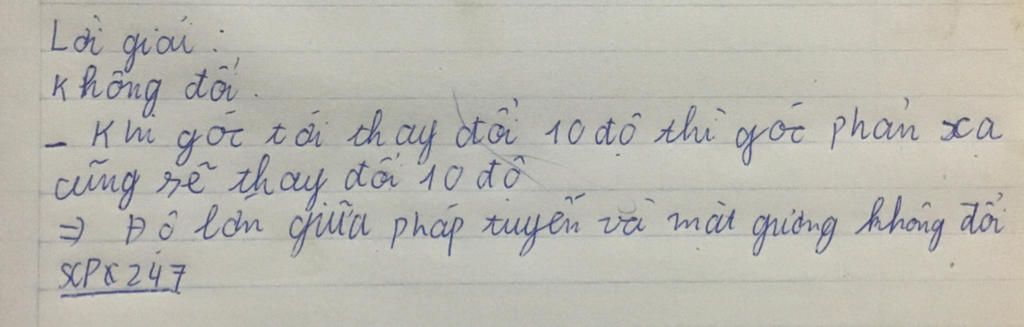 Lời giải :
Không đổi.
- Khi góc tới thay đổi 10 độ thì góc phản xạ
cũng sẽ thay đổi 10 độ
⇒ Độ lớn giữa pháp tuyến và mặt gương không đổi
XPX247